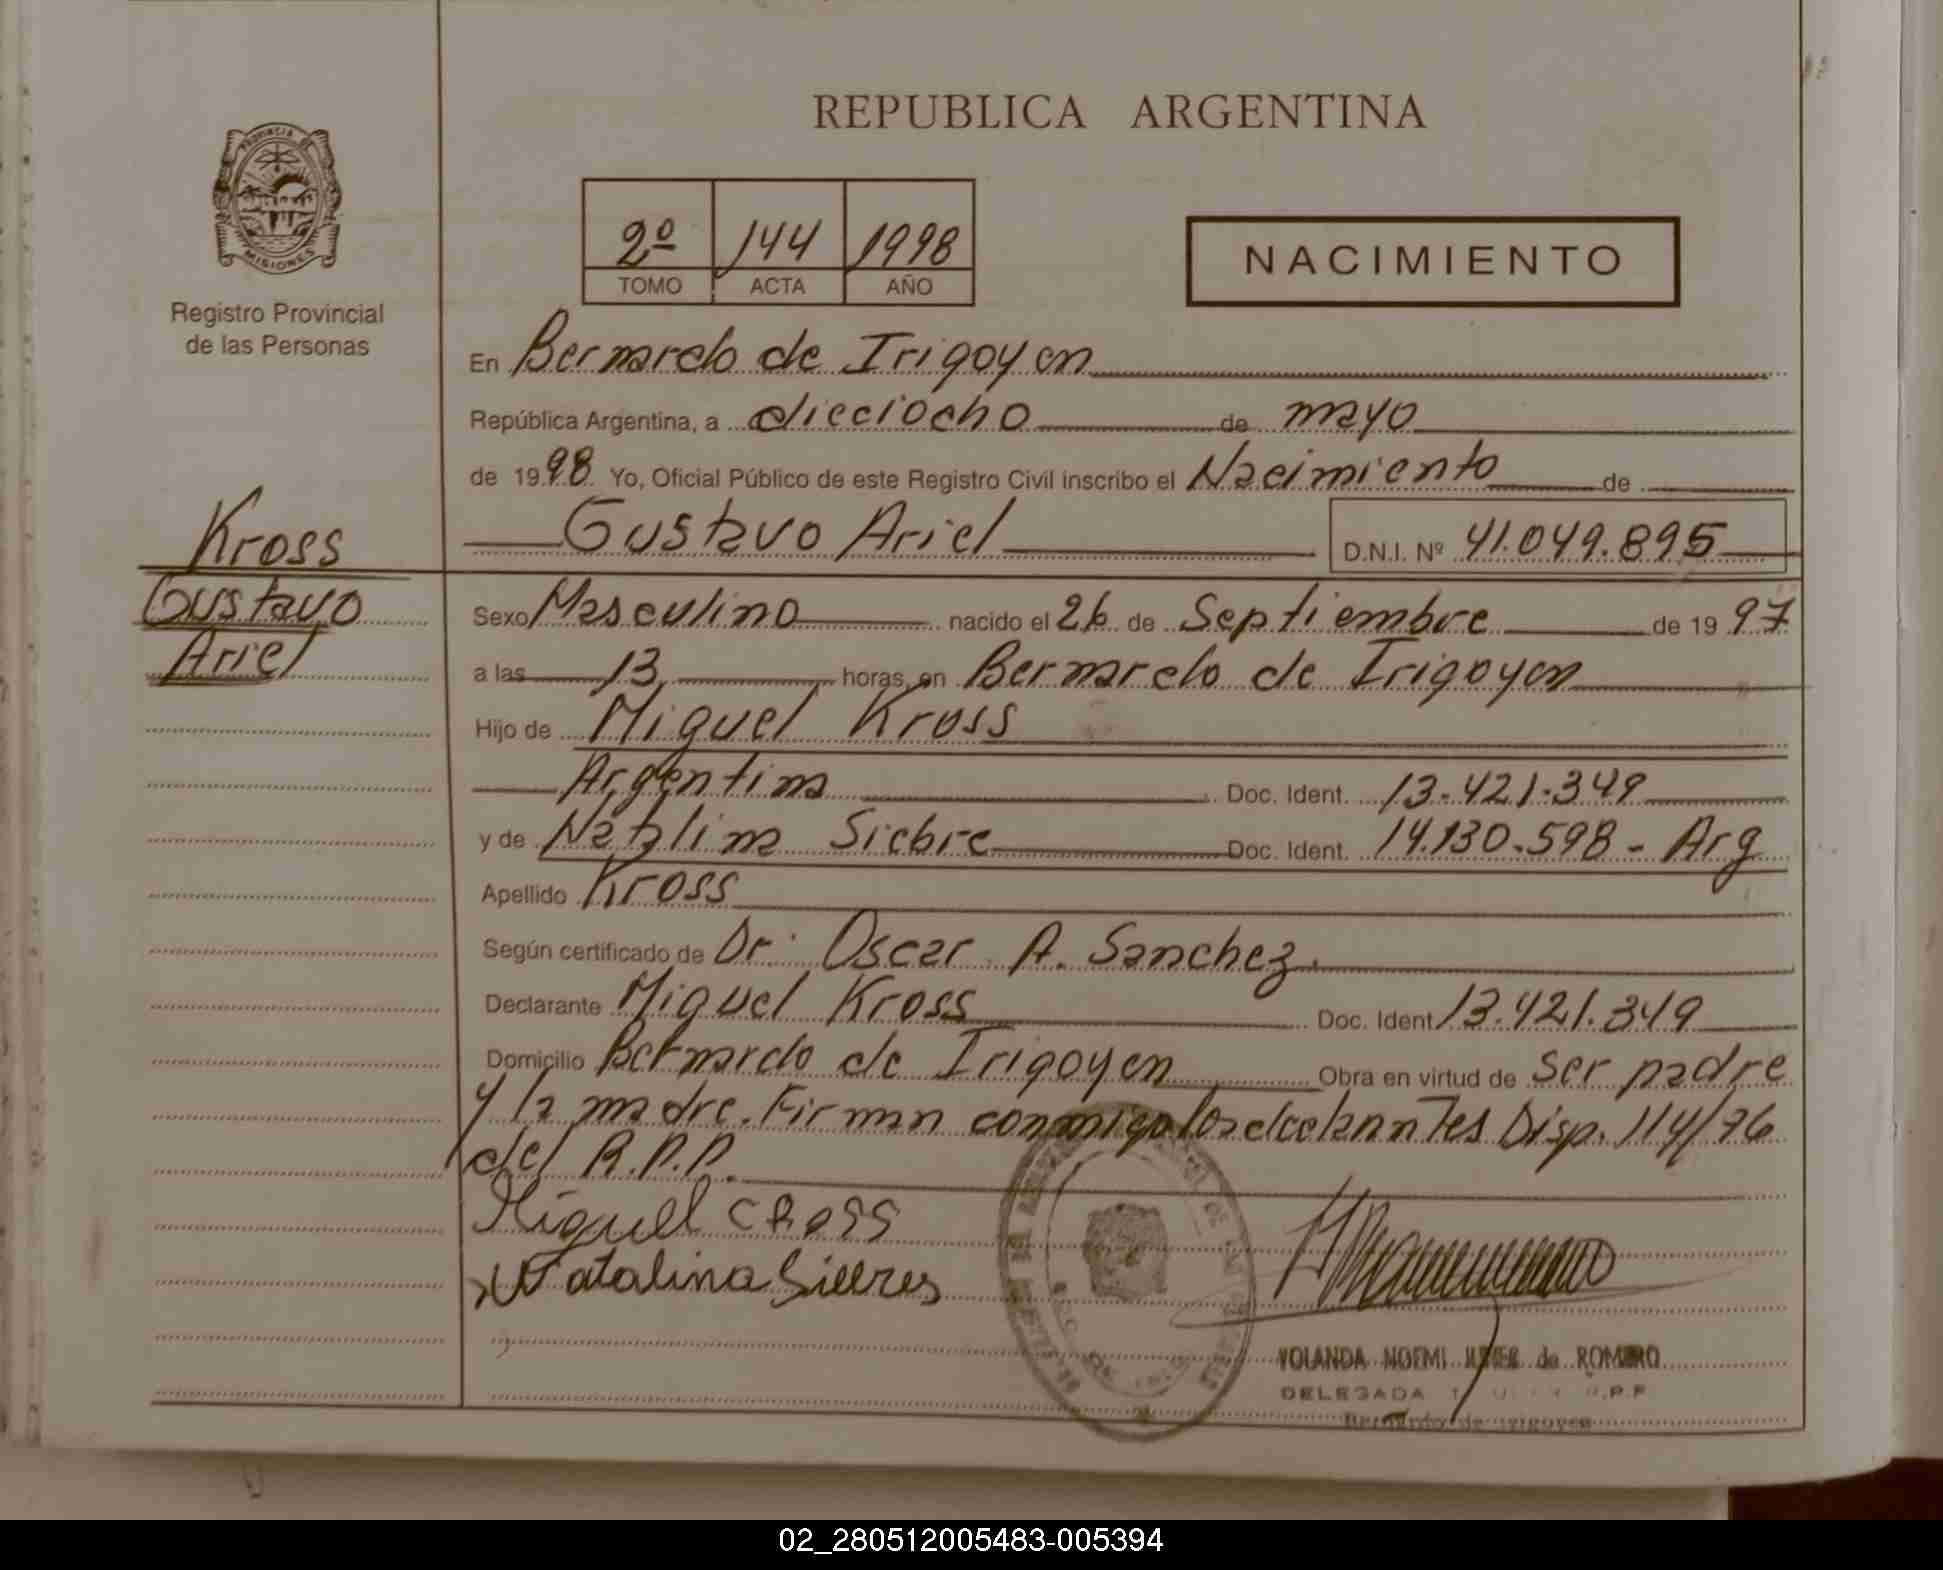 REPUBLICA ARGENTINA
PROVINCIA DE
MISIONES
Registro Provincial
de las Personas
2º 144 1998
TOMO ACTA AÑO
NACIMIENTO
En Bernardo de Irigoyen
República Argentina, a dieciocho de mayo
de 1998 Yo, Oficial Público de este Registro Civil inscribo el Nacimiento de
Gustavo Ariel D.N.I. Nº 41.049.895
Kross
Gustavo
Ariel
Sexo Masculino nacido el 26 de Septiembre de 1997
a las 13 horas, en Bernardo de Irigoyen
Hijo de Miguel Kross
Argentina Doc. Ident. 13.421.349
y de Natalina Siebre Doc. Ident. 14.130.598 - Arg
Apellido Kross
Según certificado de Dr. Oscar A. Sanchez.
Declarante Miguel Kross Doc. Ident 13.421.349
Domicilio Bernardo de Irigoyen Obra en virtud de ser padre
y la madre. Firman conmigo los declarantes Disp. 114/76
del R.P.P.
Miguel CROSS
Natalina Sieeres
YOLANDA NOEMI de ROMERO
DELEGADA R.P.P
Bernardo de Irigoyen
02_280512005483-005394